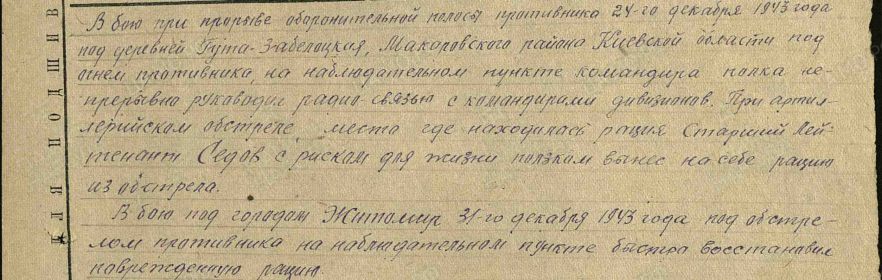 В бою при прорыве оборонительной полосы противника 24-го декабря 1943 года
под деревней Гута-Забелоцкая, Макаровского района Киевской области под
огнем противника, на наблюдательном пункте командира полка не-
прерывно руководил радио-связью с командирами дивизионов. При артил-
лерийском обстреле, места где находилась рация Старший Лей-
тенант Седов с риском для жизни ползком вынес на себе рацию
из обстрела.
В бою под городом Житомир 31-го декабря 1943 года под обстре-
лом противника на наблюдательном пункте быстро восстановил
поврежденную рацию.
ДЛЯ ПОДШИВ